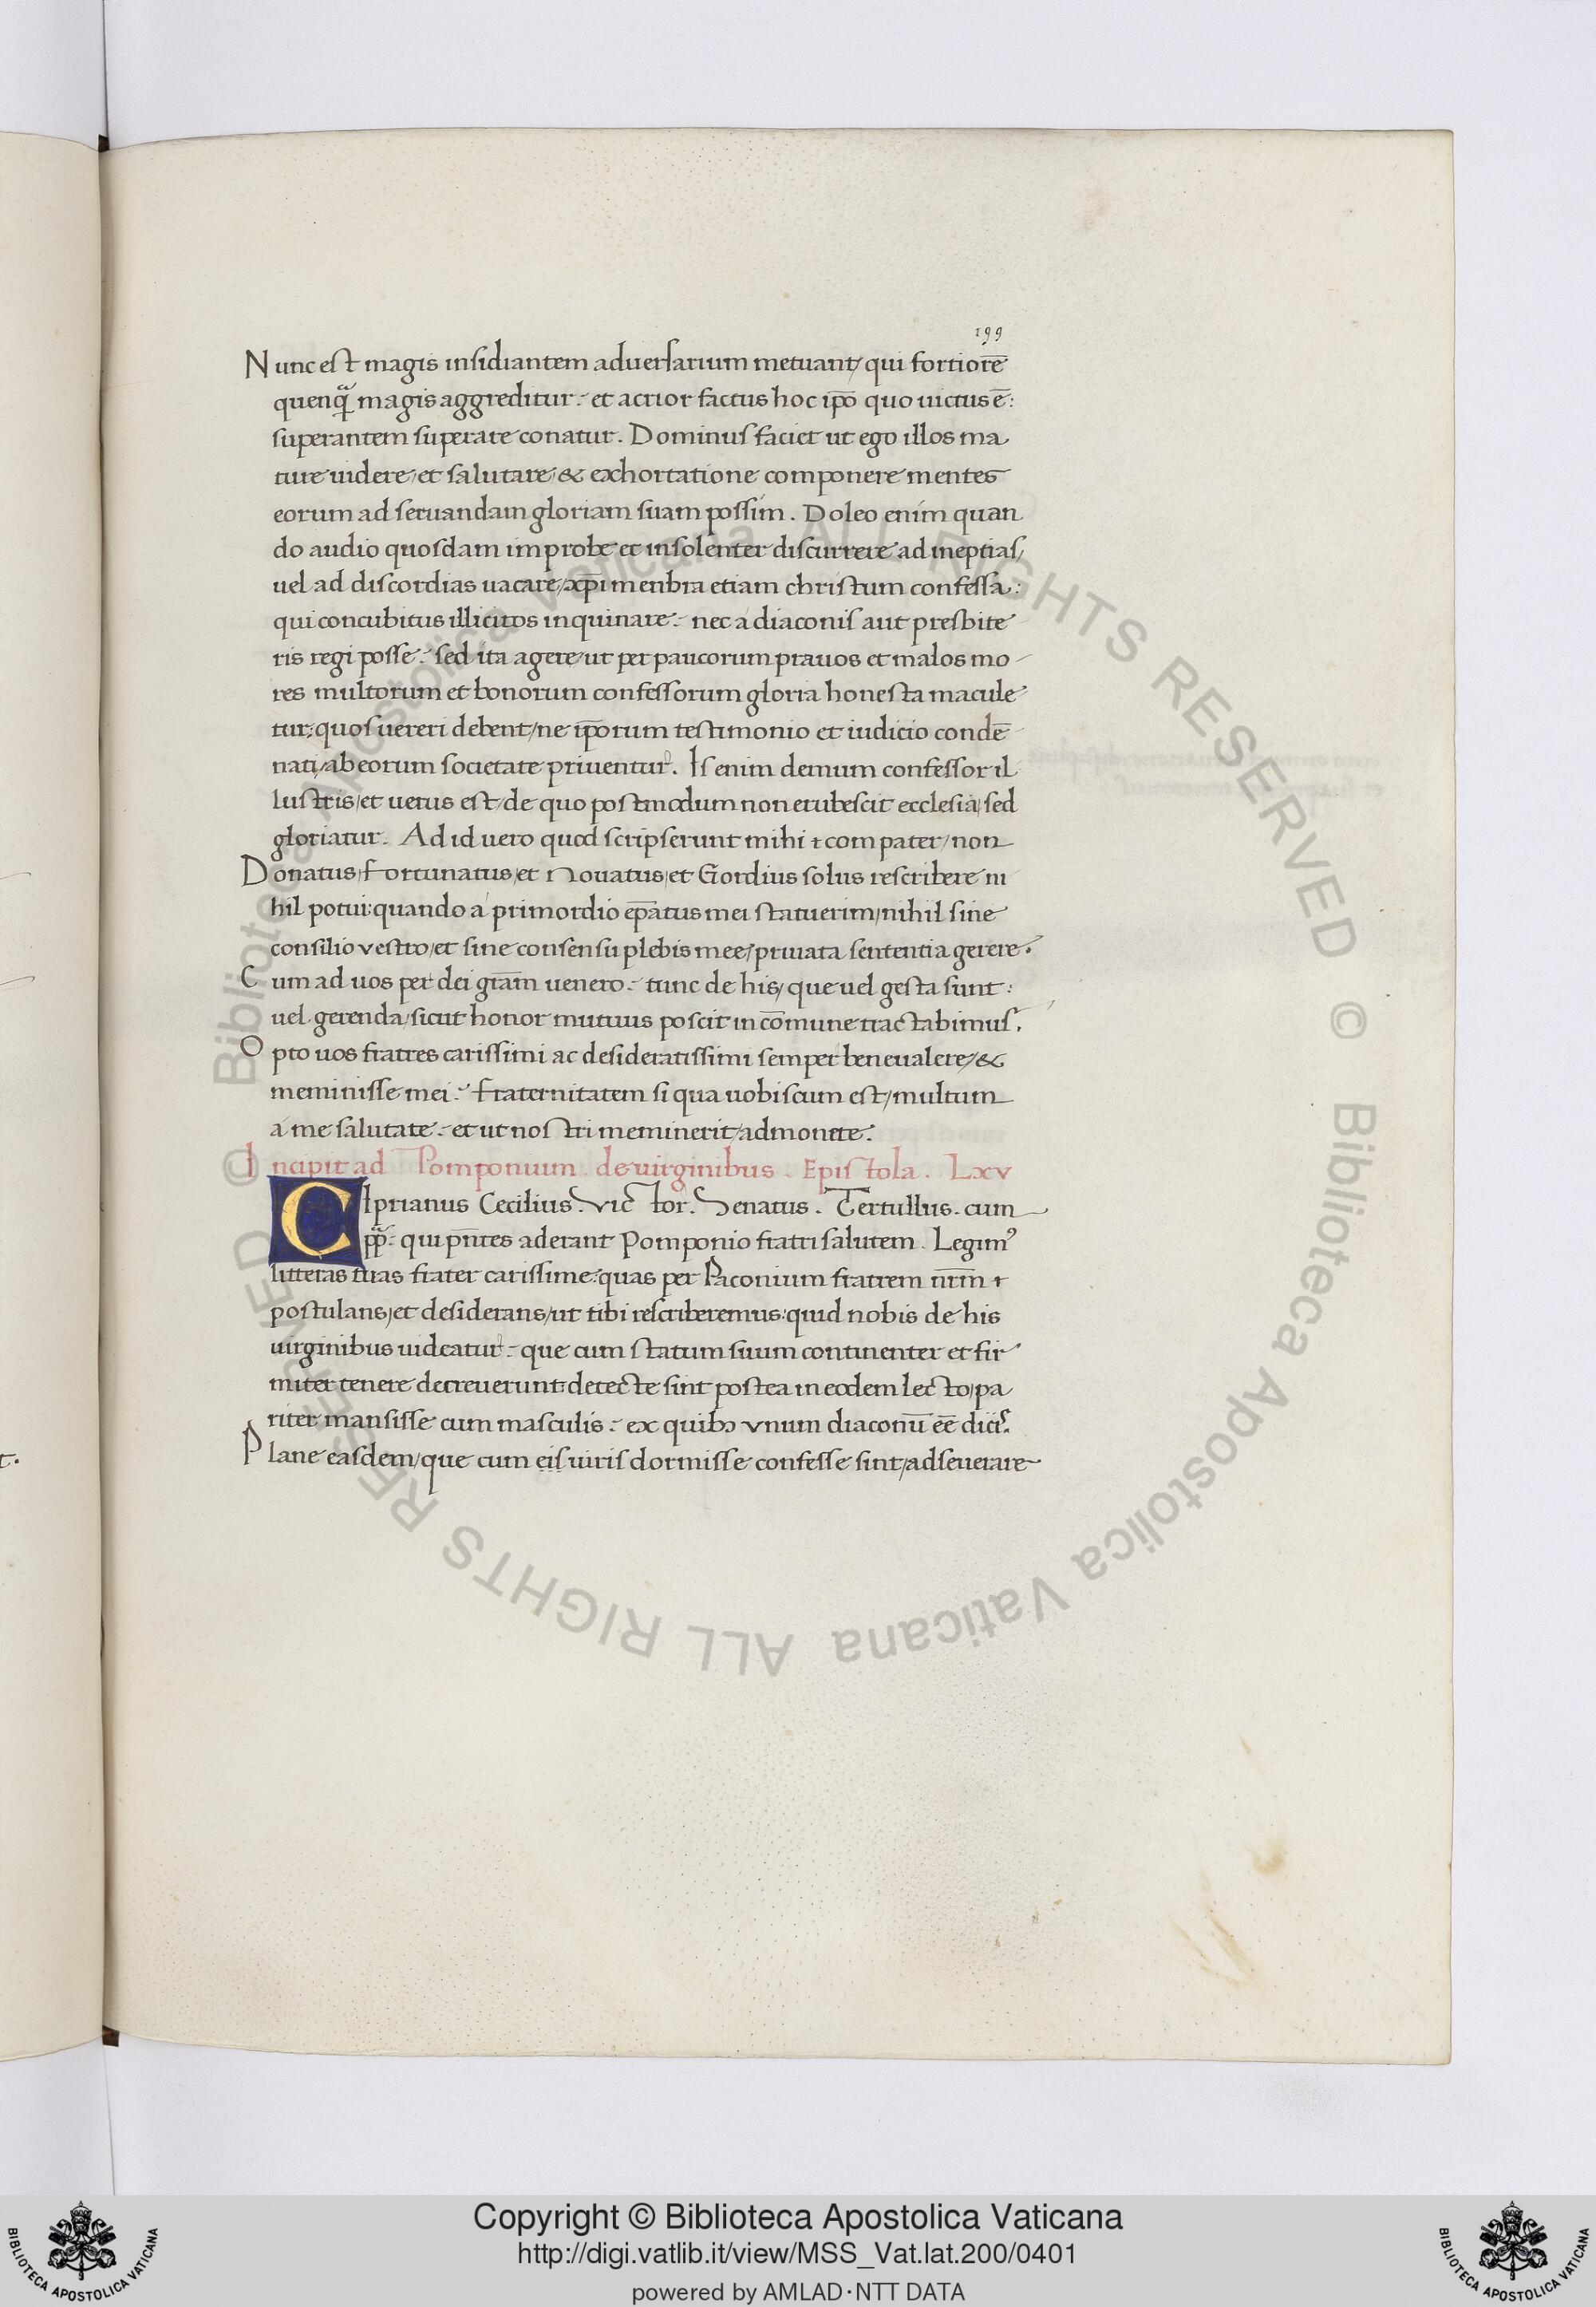 199
Nunc est magis insidiantem aduersarium metuant/ qui fortiorē
quenq̃ magis aggreditur: et acrior factus hoc ip̄o quo uictus ē:
superantem superare conatur. Dominus faciet ut ego illos ma
ture uidere/ et salutare/ & exhortatione componere mentes
eorum ad seruandam gloriam suam possim. Doleo enim quan
do audio quosdam improbe et insolenter discurrere ad ineptias/
uel ad discordias uacare/ xp̄i menbra etiam christum confessa:
qui concubitus illicitos inquinare: nec a diaconis aut presbite
ris regi posse: sed ita agere ut per paucorum prauos et malos mo
res multorum et bonorum confessorum gloria honesta macule
tur: quos uereri debent/ ne ip̄orum testimonio et iudicio condē
nati/ ab eorum societate priuentur. Is enim demum confessor il
lustris/ et uerus est/ de quo postmodum non erubescit ecclesia/ sed
gloriatur. Ad id uero quod scripserunt mihi & compater/ non
Donatus/ Fortunatus/ et Nouatus/ et Gordius solus rescribere ni
hil potui: quando a primordio ep̄atus mei statuerim/ nihil sine
consilio vestro/ et sine consensu plebis mee/ priuata sententia gerere.
Cum ad uos per dei grām uenero: tunc de his/ que uel gesta sunt:
uel gerenda/ sicut honor mutuus poscit in cōmune tractabimus.
Opto uos fratres carissimi ac desideratissimi semper beneualere/ &
meminisse mei: Fraternitatem si qua uobiscum est/ multum
a me salutate: et ut nostri meminerit/ admonete.
Incipit ad Pomponium de uirginibus. Epistola. Lxv
CIprianus Cecilius. Victor. Senatus. Tertullus. cum
pp̃: qui pn̄tes aderant Pomponio fratri salutem. Legim9
litteras tuas frater carissime: quas per Paconium fratrem nr̄m &
postulans/ et desiderans/ ut tibi rescriberemus: quid nobis de his
uirginibus uideatur: que cum statum suum continenter et fir
miter tenere decreuerunt: detecte sint postea in eodem lecto/ pa
riter mansisse cum masculis: ex quibꝫ vnum diaconū eē dicis.
Plane easdem/ que cum eis uiris dormisse confesse sint/ adseuerare
© Biblioteca Apostolica Vaticana ALL RIGHTS RESERVED © Biblioteca Apostolica Vaticana ALL RIGHTS RESERVED
Copyright © Biblioteca Apostolica Vaticana
http://digi.vatlib.it/view/MSS_Vat.lat.200/0401
powered by AMLAD·NTT DATA
BIBLIOTECA APOSTOLICA VATICANA
BIBLIOTECA APOSTOLICA VATICANA